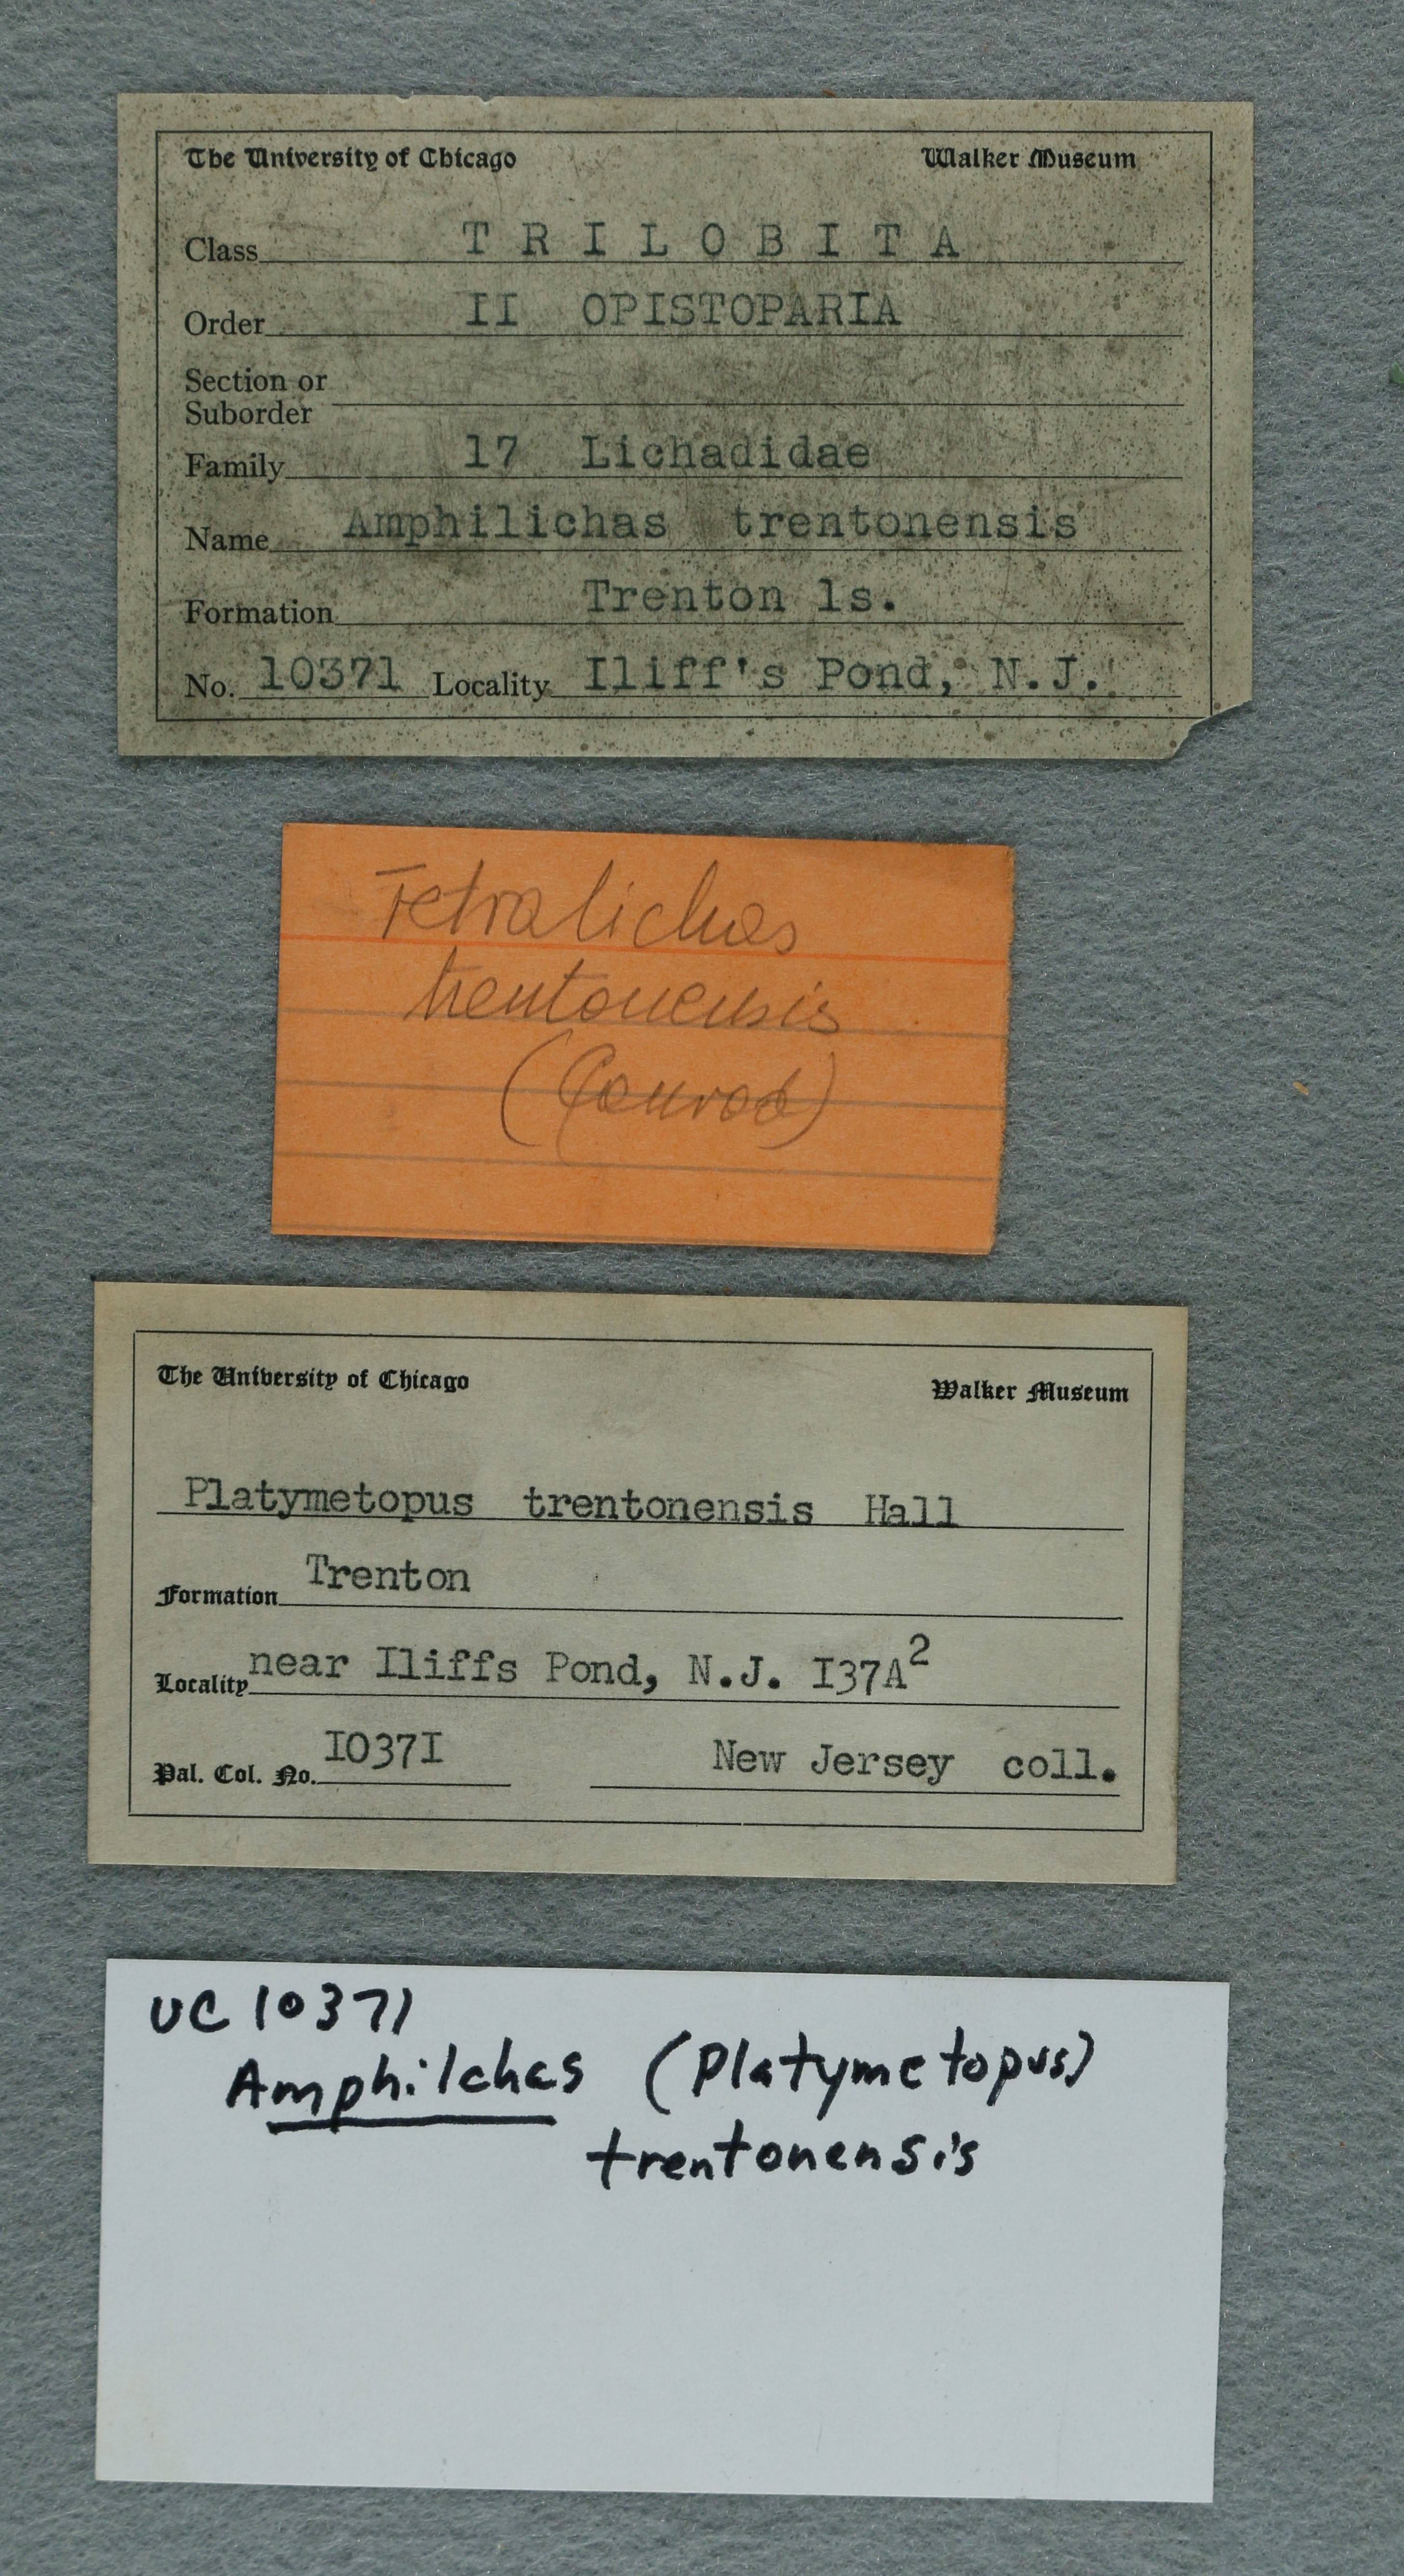 The University of Chicago Walker Museum
Class TRILOBITA
Order II OPISTOPARIA
Section or
Suborder
Family 17 Lichadidae
Name Amphilichas trentonensis
Formation Trenton ls.
No. 10371 Locality Iliff's Pond, N.J.
Tetralichas
trentonensis
(Conrad)
The University of Chicago Walker Museum
Platymetopus trentonensis Hall
Formation Trenton
Locality near Iliffs Pond, N.J. I37A²
Pal. Col. No. I037I New Jersey coll.
UC 10371
Amphilchas (Platymetopus)
trentonensis